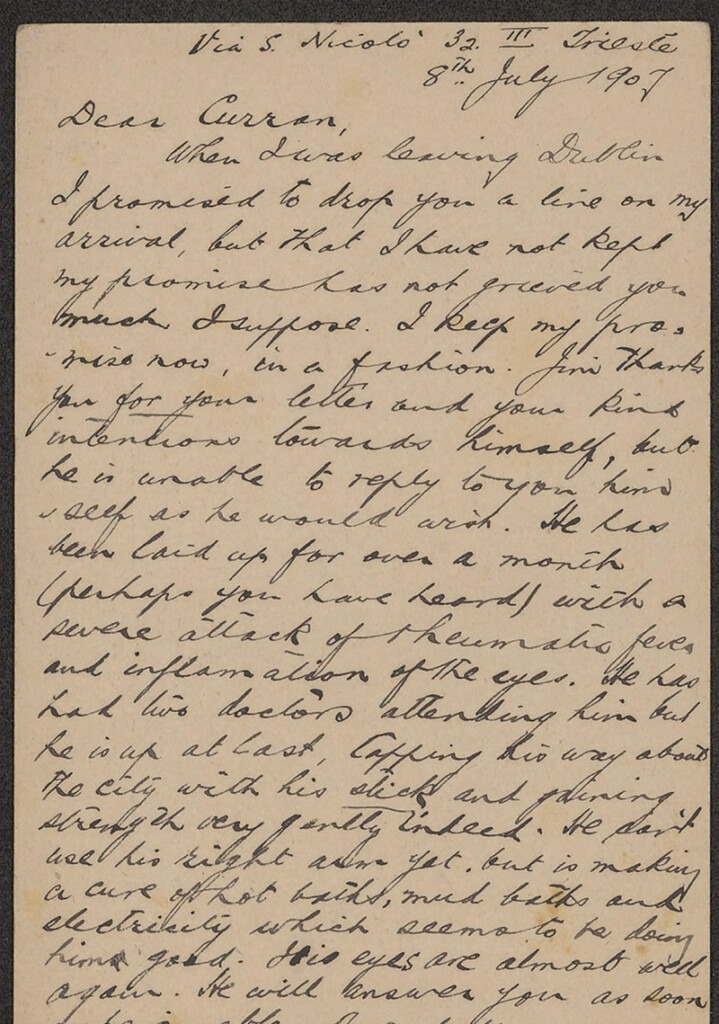 Via S. Nicolò 32. III Trieste
8th July 1907
Dear Curran,
When I was leaving Dublin
I promised to drop you a line on my
arrival, but that I have not kept
my promise has not grieved you
much I suppose. I keep my pro-
-mise now, in a fashion. Jim thanks
you for your letter and your kind
intentions towards himself, but
he is unable to reply to you him
-self as he would wish. He has
been laid up for over a month
(perhaps you have heard) with a
severe attack of rheumatic fever
and inflammation of the eyes. He has
had two doctors attending him but
he is up at last, tapping his way about
the city with his stick and gaining
strength very gently indeed. He can't
use his right arm yet, but is making
a cure of hot baths, mud baths and
electricity which seems to be doing
him good. His eyes are almost well
again. He will answer you as soon